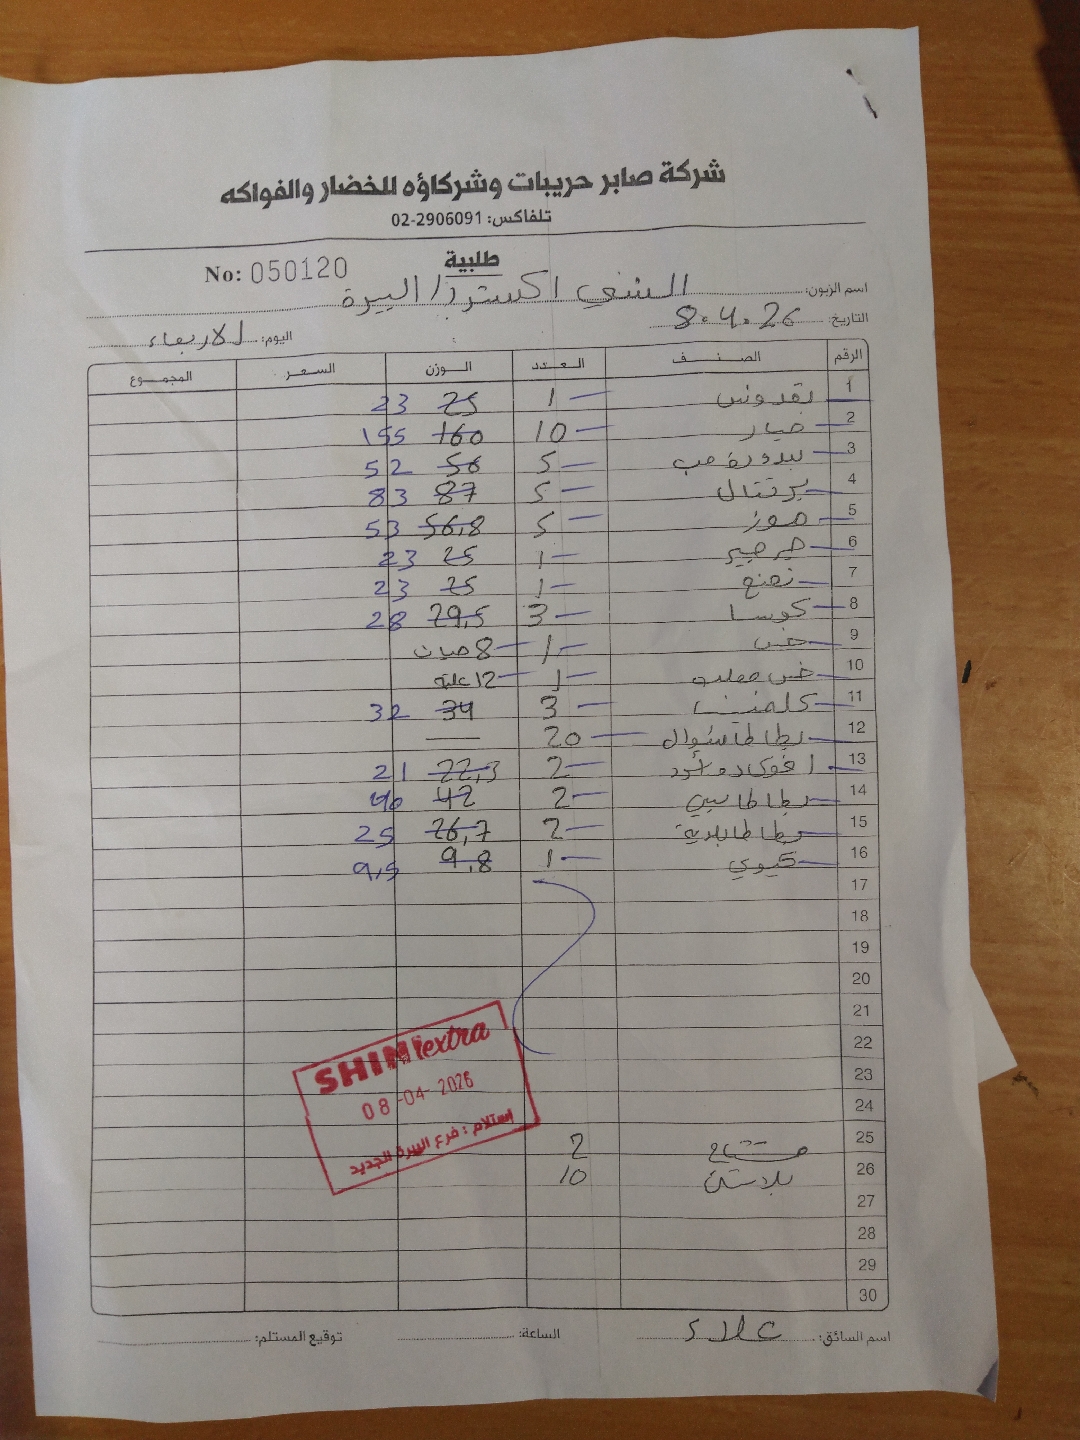 شركة صابر حريبات وشركاؤه للخضار والفواكه
تلفاكس: 02-2906091
طلبية
No: 050120
اسم الزبون: الشني اكسترا / البيرة
التاريخ: 8.4.26
اليوم: الاربعاء
الرقم الصنف العدد الوزن السعر المجموع
1 بقدونس 1 25 23
2 خيار 10 160 155
3 بندورة حب 5 56 52
4 برتقال 5 87 83
5 موز 5 56,8 53
6 جرجير 1 25 23
7 نعنع 1 25 23
8 كوسا 3 29,5 28
9 خس 1 8 حبات
10 خس 1 12 علبة
11 كلمنتينا 3 34 32
12 بطاطا شوال 20
13 افوكادو اسود 2 22,3 21
14 بطاطا بيبي 2 42 40
15 بطاطا بلدية 2 26,7 25
16 كيوي 1 9,8 9,5
17
18
19
20
21
22
23
24
25 مشتاح 2
26 بلاستيك 10
27
28
29
30
SHINI extra
08-04-2026
إستلام: فرع البيرة الجديد
اسم السائق: علاء
الساعة:
توقيع المستلم: